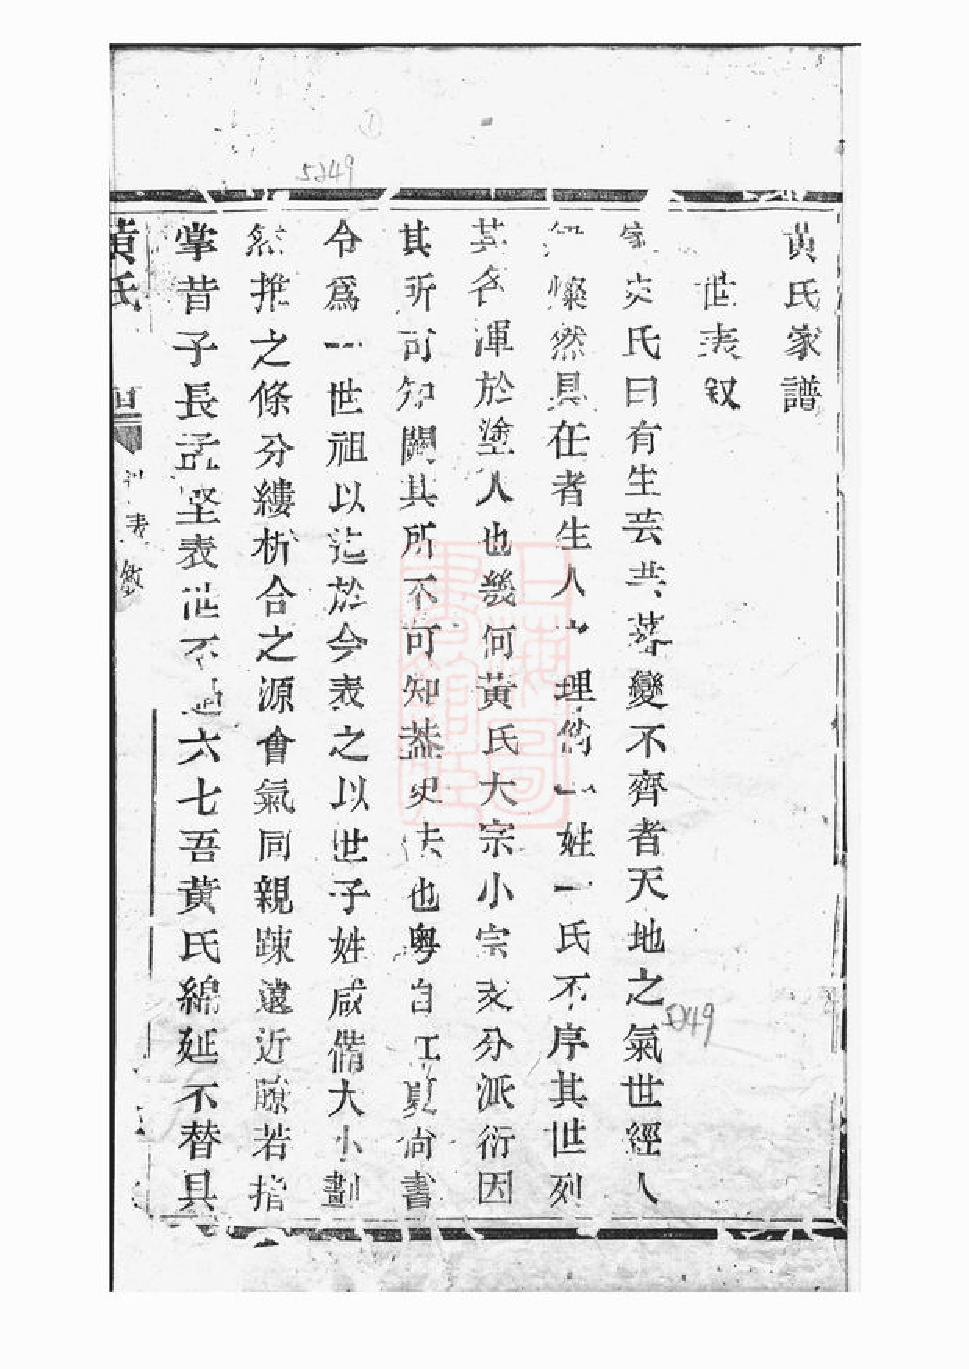 黃氏家譜
世表叙
家炎氏曰有生芸共萃變不齊者天地之氣世經人
紀燦然具在者生人之理倘一姓一氏不序其世列
其名渾於塗人也幾何黃氏大宗小宗支分派衍因
其所可知闕其所不可知葢史法也粤自江夏尙書
令爲一世祖以迄於今表之以世子姓咸備大小劃
然推之條分縷析合之源會氣同親踈遠近瞭若指
掌昔子長孟堅表世不過六七吾黃氏綿延不替具
黃氏
世表叙
5249
5249
上海圖書館藏